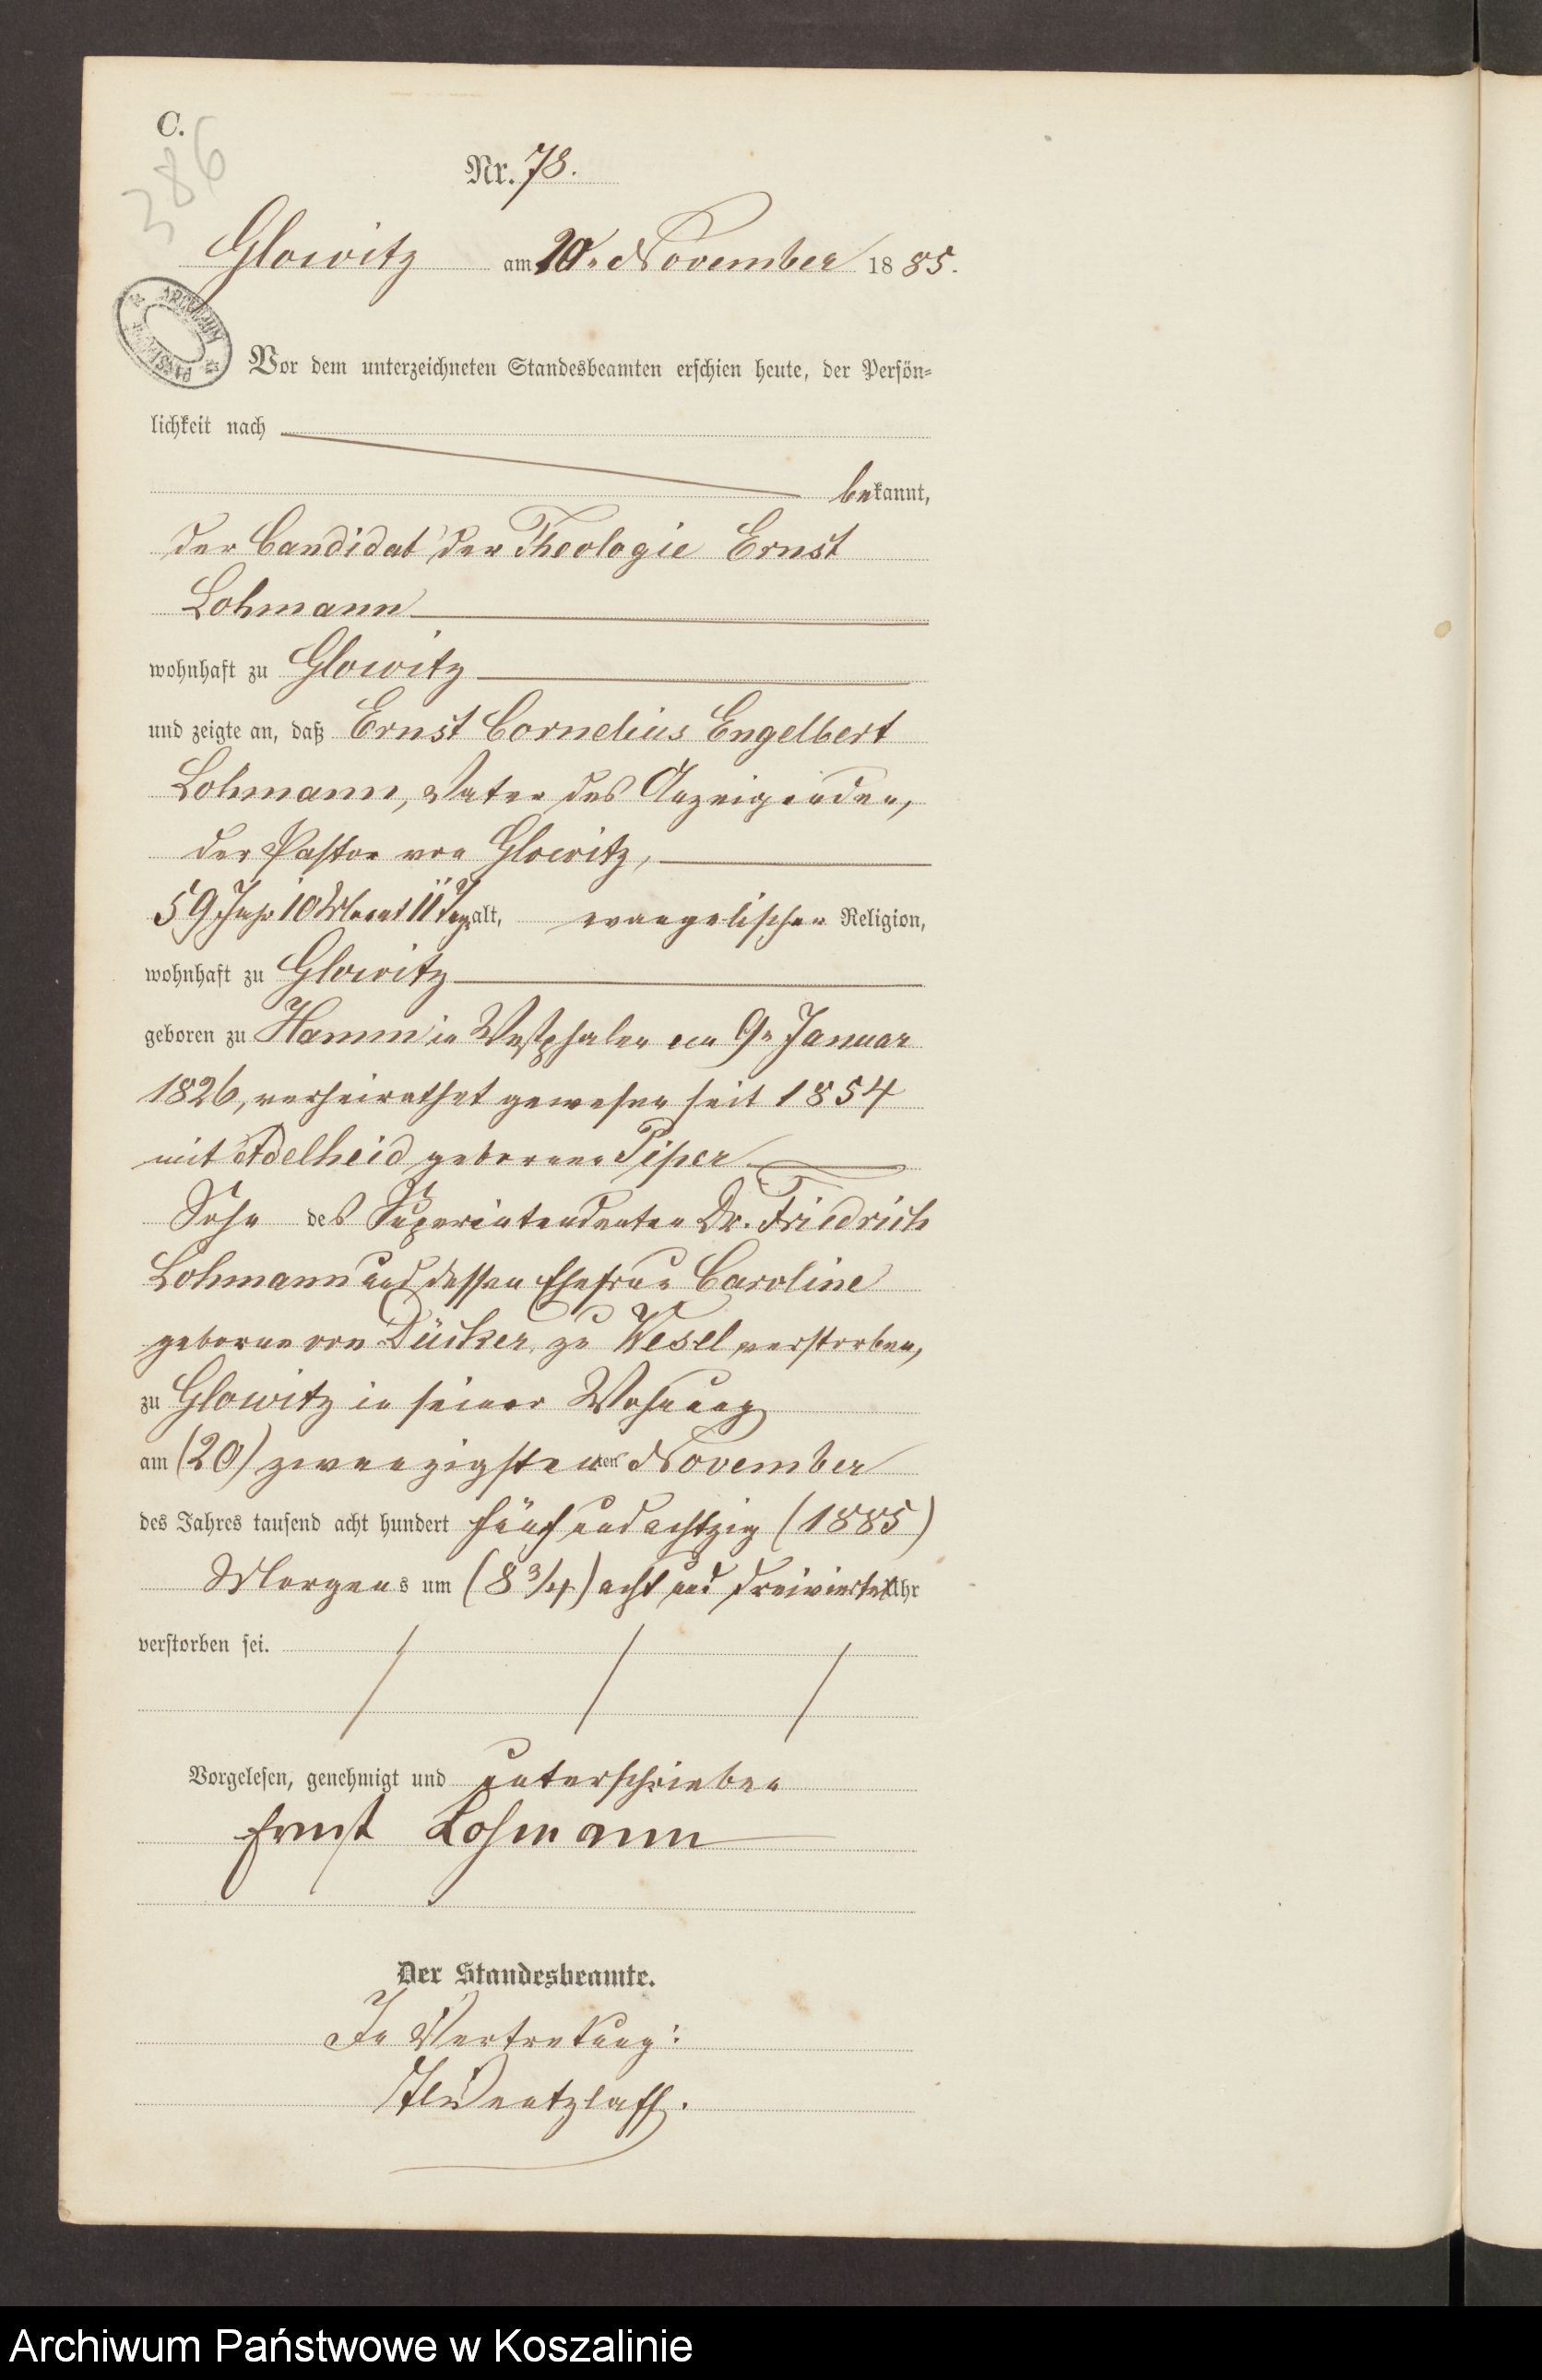 C.
386
Nr. 78.
Glowitz am 20. November 1885.
ARCHIWUM
Vor dem unterzeichneten Standesbeamten erschien heute, der Persön-
lichkeit nach
bekannt,
der Candidat der Theologie Ernst
Lohmann
wohnhaft zu Glowitz
und zeigte an, daß Ernst Cornelius Engelbert
Lohmann, Vater des Anzeigenden,
der Pastor von Glowitz,
59 Jahr 10 Monat 11 Tage alt, evangelischer Religion,
wohnhaft zu Glowitz
geboren zu Hamm in Westphalen am 9. Januar
1826, verheirathet gewesen seit 1854
mit Adelheid geborene Piper
Sohn des Superintendenten Dr. Friedrich
Lohmann und dessen Ehefrau Caroline
geborne von Dücker, zu Wesel verstorben,
zu Glowitz in seiner Wohnung
am (20) zwanzigsten ten November
des Jahres tausend acht hundert fünf und achtzig (1885)
Morgens um (8 3/4) acht und dreiviertel Uhr
verstorben sei.
Vorgelesen, genehmigt und unterschrieben
Ernst Lohmann
Der Standesbeamte.
In Vertretung:
Wentzlaff.
Archiwum Państwowe w Koszalinie